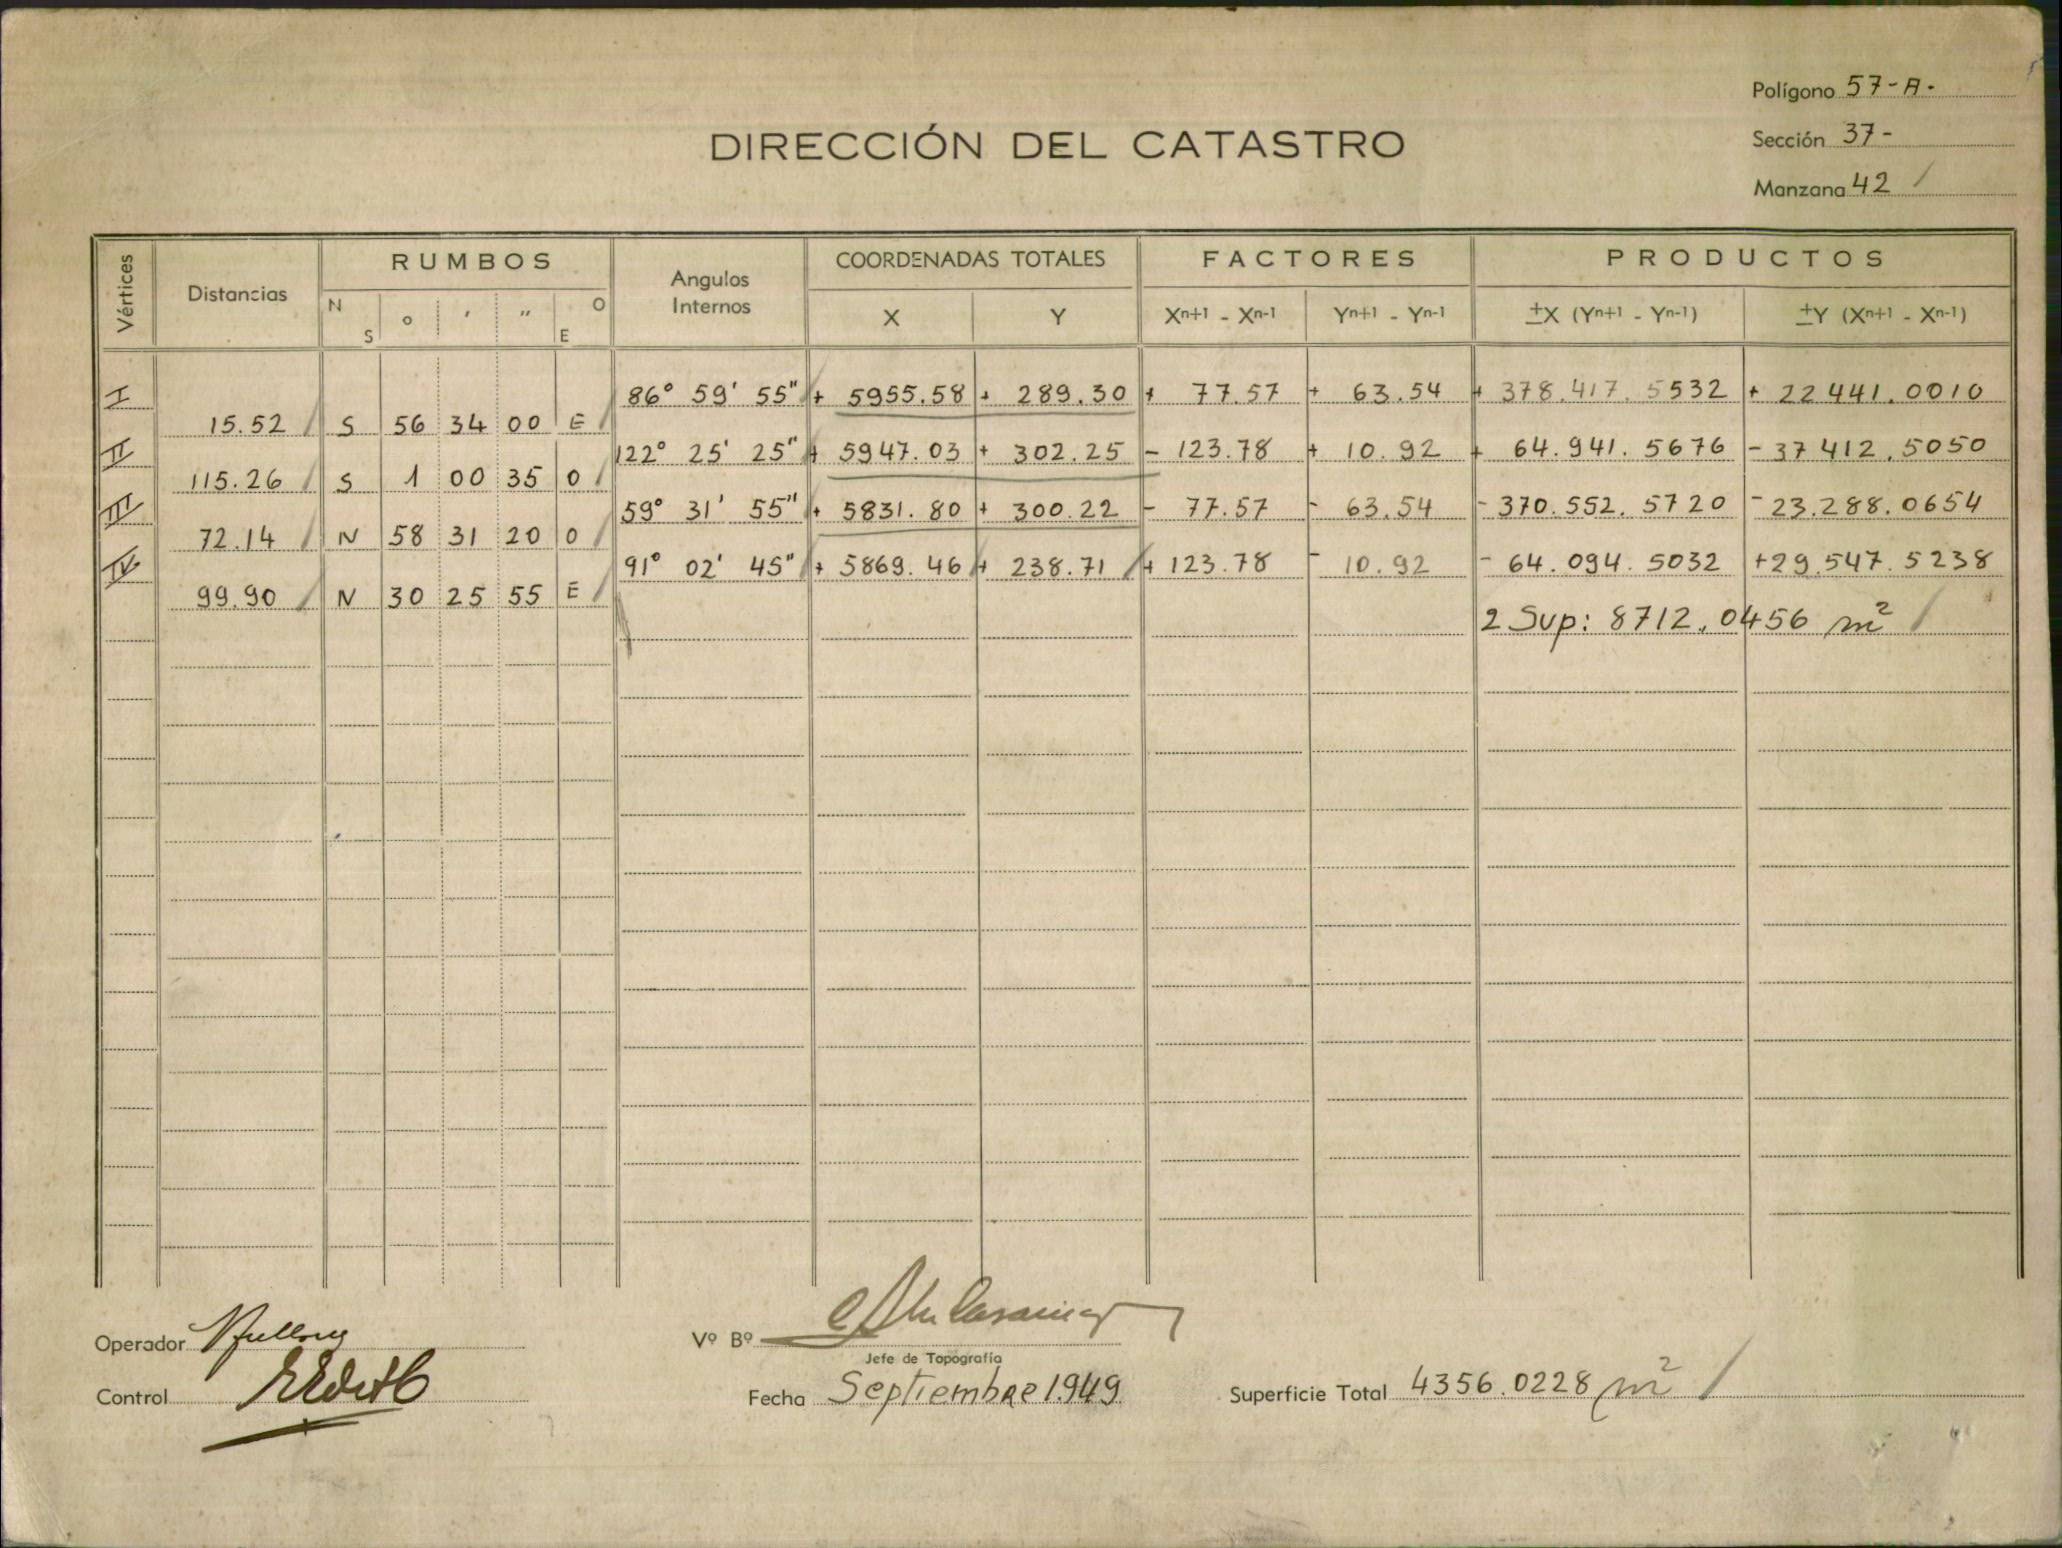 Polígono 57-A.
Sección 37-
Manzana 42 /
DIRECCIÓN DEL CATASTRO
Vértices Distancias RUMBOS Angulos Internos COORDENADAS TOTALES FACTORES PRODUCTOS
N S ° ' " O E X Y Xn+1 - Xn-1 Yn+1 - Yn-1 ±X (Yn+1 - Yn-1) ±Y (Xn+1 - Xn-1)
I 86° 59' 55" + 5955.58 + 289.30 + 77.57 + 63.54 + 378.417.5532 + 22 441.0010
15.52 / S 56 34 00 E /
II 122° 25' 25" + 5947.03 + 302.25 - 123.78 + 10.92 + 64.941.5676 - 37 412.5050
115.26 / S 1 00 35 O /
III 59° 31' 55" + 5831.80 + 300.22 - 77.57 - 63.54 - 370.552.5720 - 23.288.0654
72.14 / N 58 31 20 O /
IV 91° 02' 45" + 5869.46 + 238.71 / + 123.78 - 10.92 - 64.094.5032 + 29.547.5238
99.90 / N 30 25 55 E /
2 Sup: 8712,0456 m² /
Operador
Vº Bº
Jefe de Topografía
Control
Fecha Septiembre 1.949
Superficie Total 4356.0228 m² /